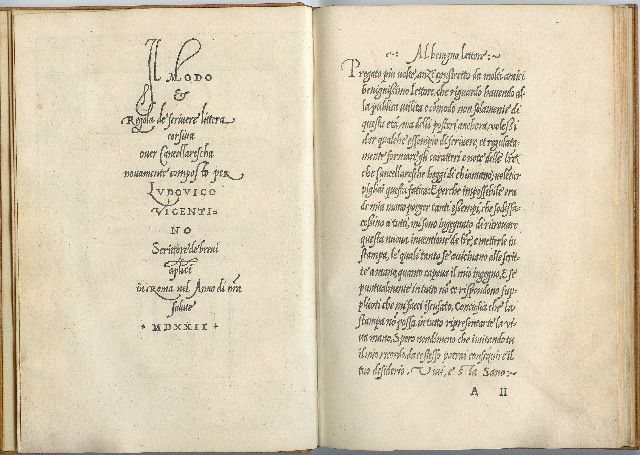 Il MODO
&
Regola de scrivere littera
corsiva
over Cancellarescha
novamente composto per
LUDOVICO
VICENTI=
NO
Scrittore de brevi
aplici
in Roma nel Anno di nra
salute
+ MDXXII +
Al benigno lettore:~
Pregato piu volte, anzi constretto da molti amici
benignissimo Lettore, che riguardo havendo al=
la publica utilita e cómodo non solamente di
questa etá, ma delli posteri anchora, volessi
dar qualche essempio di scrivere, et regulata=
mente formare gli caratteri e note delle lre,
che Cancellaresche hoggi dì chiamano, volétier
pigliai questa fatica: E perche impossibile era
de mia mano porger tanti essempi, che sodisfa=
cessino a tutti, mi sono ingegnato di ritrovare
questa nuova inventione de lre, e metterle in
stampa, le quali tanto se avicinano alle scrit=
te a mano, quanto capeva il mio ingegno, E se
puntualmente in tutto nó te rispondono, sup=
plicoti che mi facci iscusato, Conciosia che la
stampa nó possa in tutto ripresentarte la vi=
va mano, Spero nondimeno che imitando tu
il mio ricordo, da te stesso potrai consequire il
tuo disiderio. Vivi, e stá Sano:~
A II